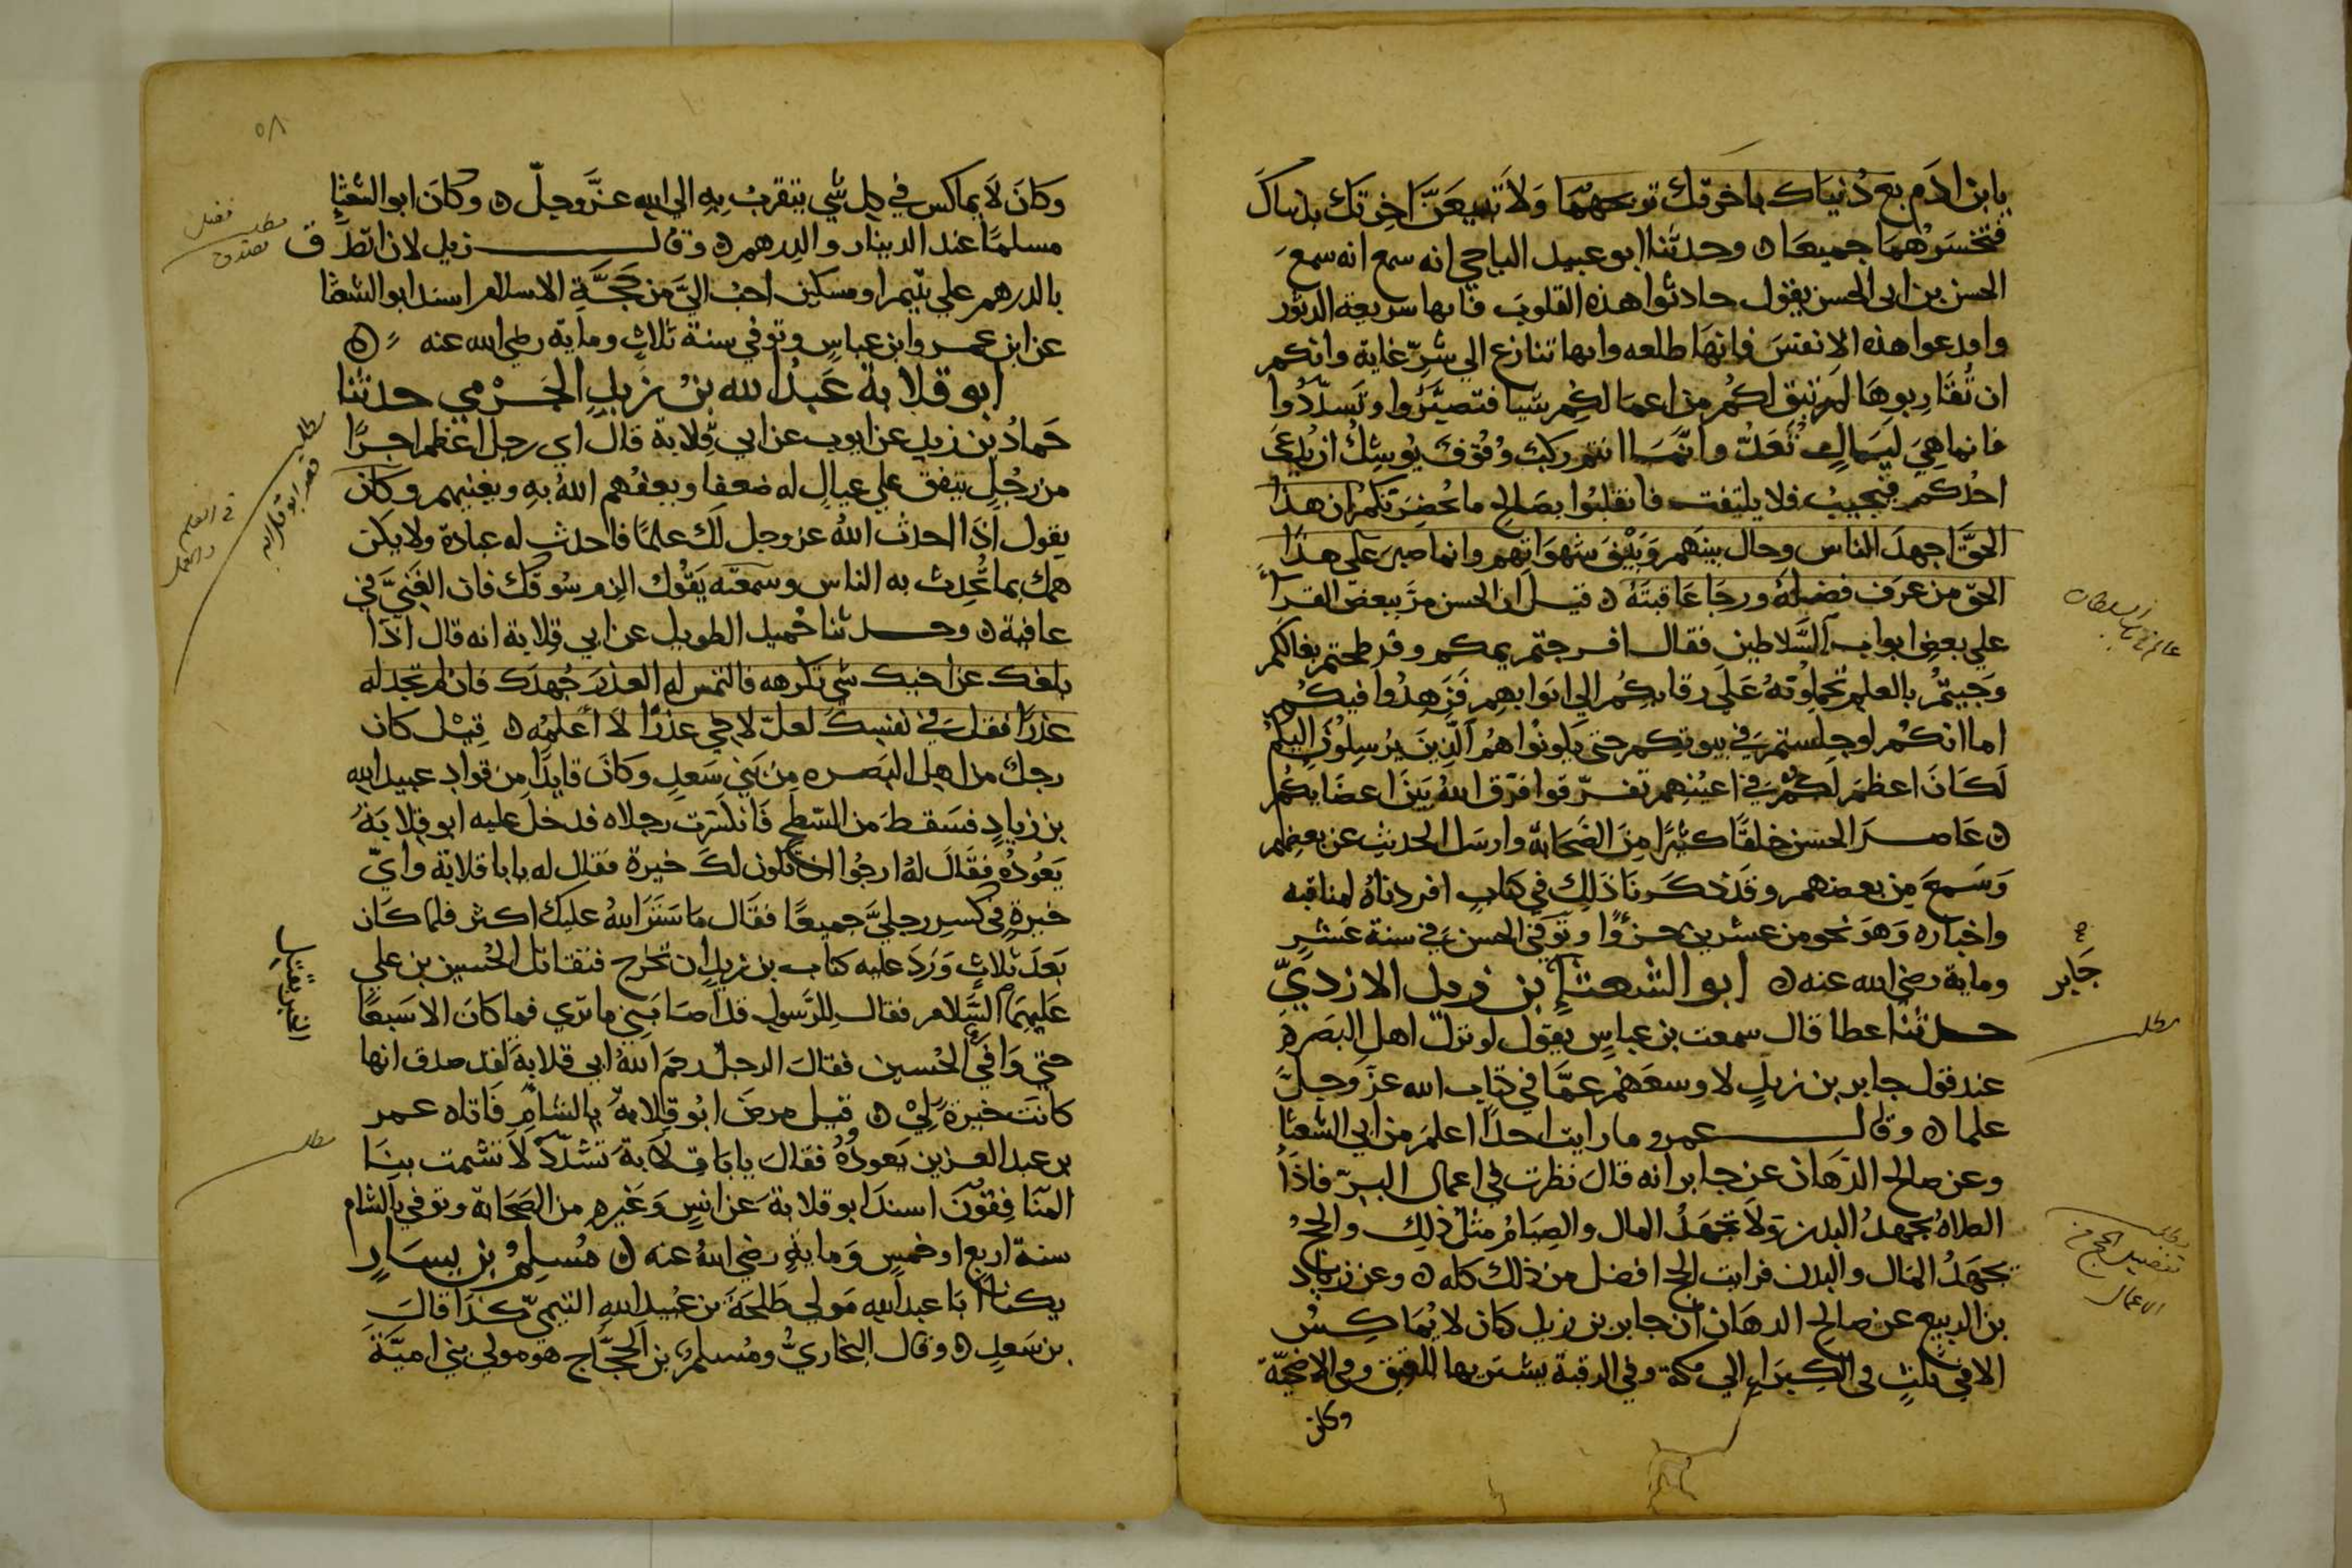 يابن ادم بع دنياك باخرتك تربحهما ولا تبيعن اخرتك بدنياك
فتخسرهما جميعا ه وحدثنا ابو عبيد الباجي انه سمع انه سمع
الحسن بن ابي الحسن يقول حادثوا هذه القلوب فانها سريعة الدثور
واقدعوا هذه الانفس فانها طلعه وانها تنازع الي شر غاية وانكم
ان تقاربوها لم تبق لكم من اعمالكم شيا فتصبروا وتسددوا
فانما هي ليال تعد وانما انتم ركب وقوف يوشك ان يدعي
احدكم فيجيب فلا يلتفت فانقلبوا بصالح ما بحضرتكم ان هذا
الحق اجهد الناس وحال بينهم وبين شهواتهم وانما صبر علي هذا
الحق من عرف فضله ورجا عاقبته ه قيل ان الحسن مر ببعض القرا
علي بعض ابواب السلاطين فقال افرجتم بكم وفرطحتم نعالكم
وجيتم بالعلم تحملونه علي رقابكم الي ابوابهم فزهدوا فيكم
اما انكم لو جلستم في بيوتكم حتي يكونوا هم الذين يرسلون اليكم
لكان اعظم لكم في اعينهم تفرقوا فرق الله بين اعضايكم
ه عاصر الحسن خلقا كثيرا من الصحابة وارسل الحديث عن بعضهم
وسمع من بعضهم وقد ذكرنا ذلك في كتاب افردناه لمناقبه
واخباره وهو نحو من عشرين جزوا وتوفي الحسن في سنة عشر
وماية رضي الله عنه ه ابو الشعثا بن زيد الازدي
حدثنا عطا قال سمعت بن عباس يقول لو نزل اهل البصرة
عند قول جابر بن زيد لا وسعهم عما في كتاب الله عز وجل
علما ه وقال عمرو ما رايت احدا اعلم من ابي الشعثا
وعن صالح الدهان عن جابر انه قال نظرت في اعمال البر فاذا
الصلاة تجهد البدن ولا تجهد المال والصيام مثل ذلك والحج
تجهد المال والبدن فرايت الحج افضل من ذلك كله ه وعن زياد
بن الربيع عن صالح الدهان ان جابر بن زيد كان لا يماكس
الا في ثلث في الكراء الي مكة وفي الرقبة يشتريها للعتق وفي الاضحية
وكان
جابر
صح
مطلب
مطلب
تفضيل الحج من
الاعمال
٥٨
وكان لا يماكس في كل شي يتقرب به الي الله عز وجل ه وكان ابو الشعثا
مسلما عند الدينار والدرهم ه وقال زيد لان اتصدق
بالدرهم علي يتيم او مسكين احب الي من حجة الاسلام اسند ابو الشعثا
عن ابن عمر وابن عباس وتوفي سنة ثلاث وماية رضي الله عنه ه
ابو قلابة عبد الله بن زيد الجرمي حدثنا
حماد بن زيد عن ايوب عن ابي قلابة قال اي رجل اعظم اجرا
من رجل ينفق علي عيال له ضعفا ويعفهم الله به ويغنيهم وكان
يقول اذا احدث الله عز وجل لك علما فاحدث له عبادة ولا يكن
همك بما تحدث به الناس وسمعته يقول الزم سوقك فان الغني في
عافية ه وحدثنا حميد الطويل عن ابي قلابة انه قال اذا
بلغك عن اخيك شي تكرهه فالتمس له العذر جهدك فان لم تجد له
عذرا فقل في نفسك لعل لاخي عذرا لا اعلمه ه قيل كان
رجل من اهل البصره من بني سعد وكان قايدا من قواد عبيد الله
بن زياد فسقط من السطح فانكسرت رجلاه فدخل عليه ابو قلابة
يعوده فقال له ارجوا ان تكون لك خيرة فقال له يابا قلابة واي
خيرة في كسر رجلي جميعا فقال ما ستر الله عليك اكثر فلما كان
بعد ثلاث ورد عليه كتاب بن زياد ان تخرج فتقاتل الحسين بن علي
عليهما السلام فقال للرسول قد اصابني ما تري فما كان الا سبعا
حتي وافي الحسين فقال الرجل رحم الله ابي قلابة لقد صدق انها
كانت خيرة لي ه قيل مرض ابو قلابة بالشام فاتاه عمر
بن عبد العزيز يعوده فقال يابا قلابة تشدد لا تشمت بنا
المنافقون اسند ابو قلابة عن انس وغيره من الصحابة وتوفي بالشام
سنة اربع او خمس وماية رضي الله عنه ه مسلم بن يسار
يكنا ابا عبد الله مولي طلحة بن عبيد الله التيمي كذا قال
بن سعد ه وقال البخاري ومسلم بن الحجاج هو مولي بني امية
مطلب
مطلب
مطلب